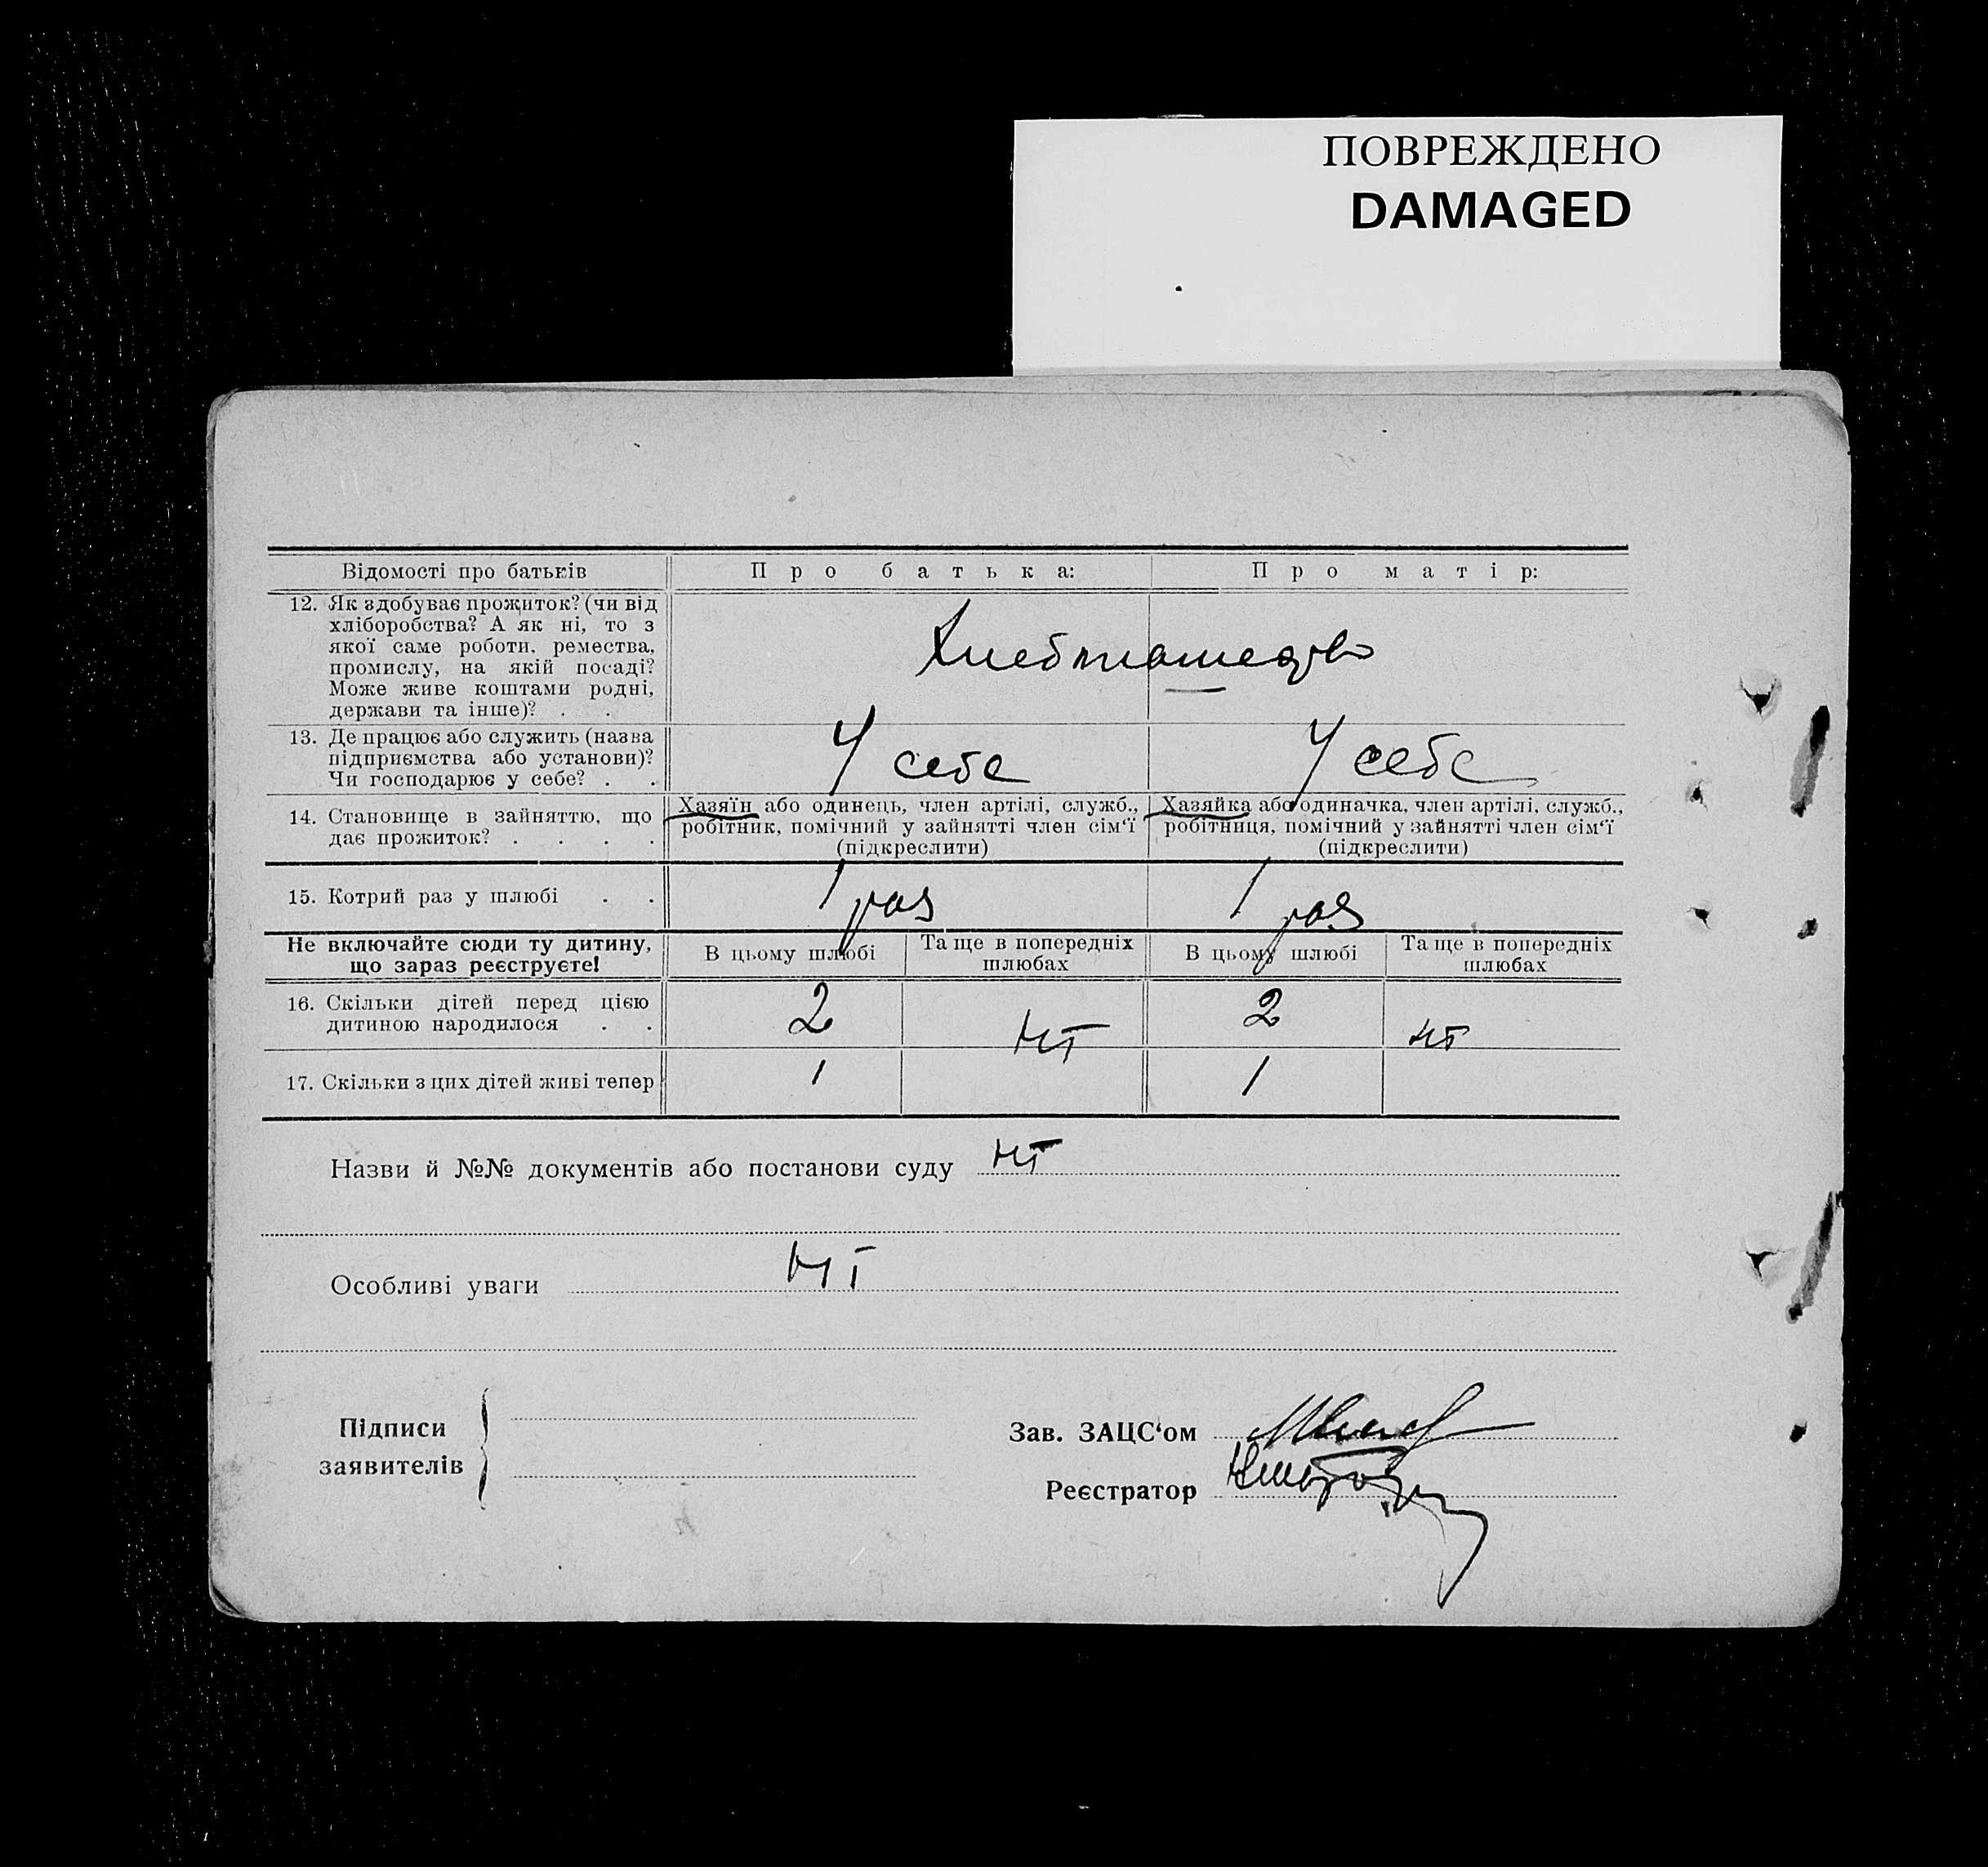 ПОВРЕЖДЕНО
DAMAGED
Відомості про батьків
Про батька:
Про матір:
12. Як здобуває прожиток? (чи від
хліборобства? А як ні, то з
якої саме роботи, ремества,
промислу, на якій посаді?
Може живе коштами родні,
держави та інше)? . .
13. Де працює або служить (назва
підприємства або установи)?
Чи господарює у себе? . .
У себе
У себе
14. Становище в зайняттю, що
дає прожиток? . . . .
Хазяїн або одинець, член артілі, служб.,
робітник, помічний у зайнятті член сім‘ї
(підкреслити)
Хазяйка або одиначка, член артілі, служб.,
робітниця, помічний у зайнятті член сім‘ї
(підкреслити)
15. Котрий раз у шлюбі . .
1 раз
1 раз
Не включайте сюди ту дитину,
що зараз реєструєте!
В цьому шлюбі
Та ще в попередніх
шлюбах
В цьому шлюбі
Та ще в попередніх
шлюбах
16. Скільки дітей перед цією
дитиною народилося . .
2
ні
2
ні
17. Скільки з цих дітей живі тепер
1
1
Назви й №№ документів або постанови суду ні
Особливі уваги ні
Підписи
заявителів
Зав. ЗАЦС‘ом
Реєстратор